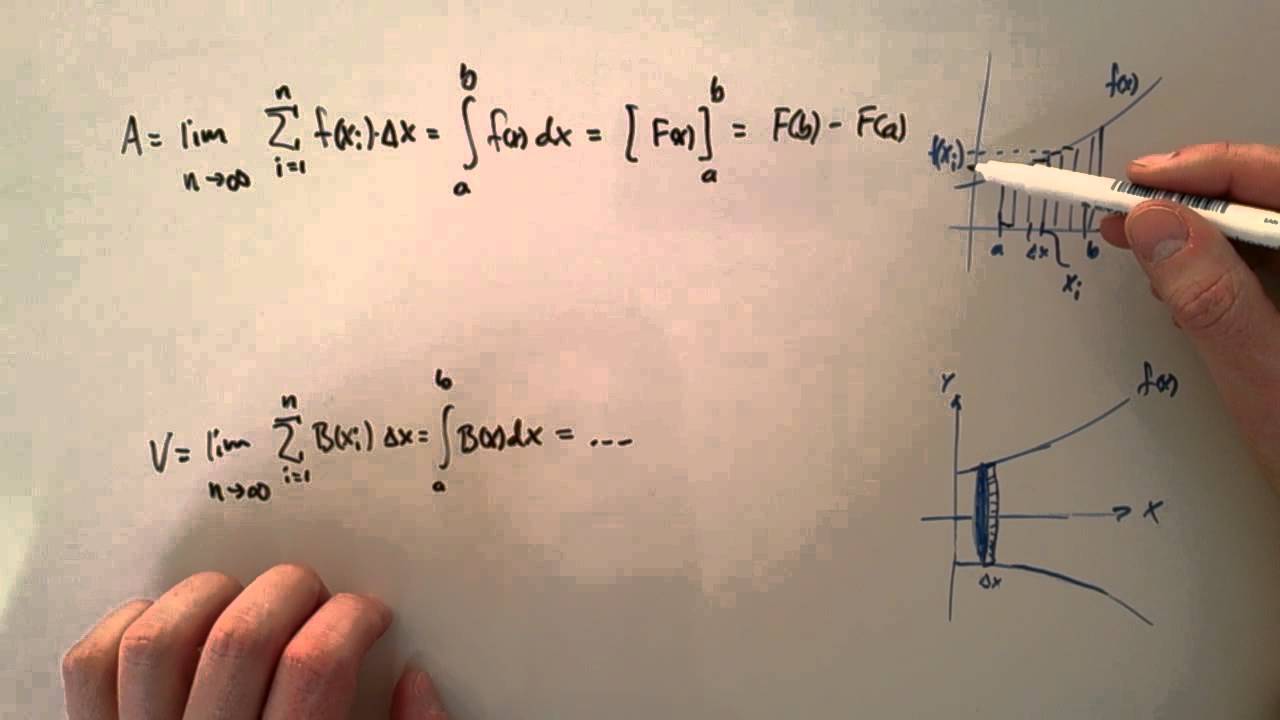 A = lim n→∞ ∑ i=1 n f(xᵢ)·Δx = ∫ a b f(x) dx = [F(x)] a b = F(b) - F(a)
f(x)
f(xᵢ)
a Δx b
xᵢ
Y f(x)
V = lim n→∞ ∑ i=1 n B(xᵢ) Δx = ∫ a b B(x) dx = ...
X
Δx